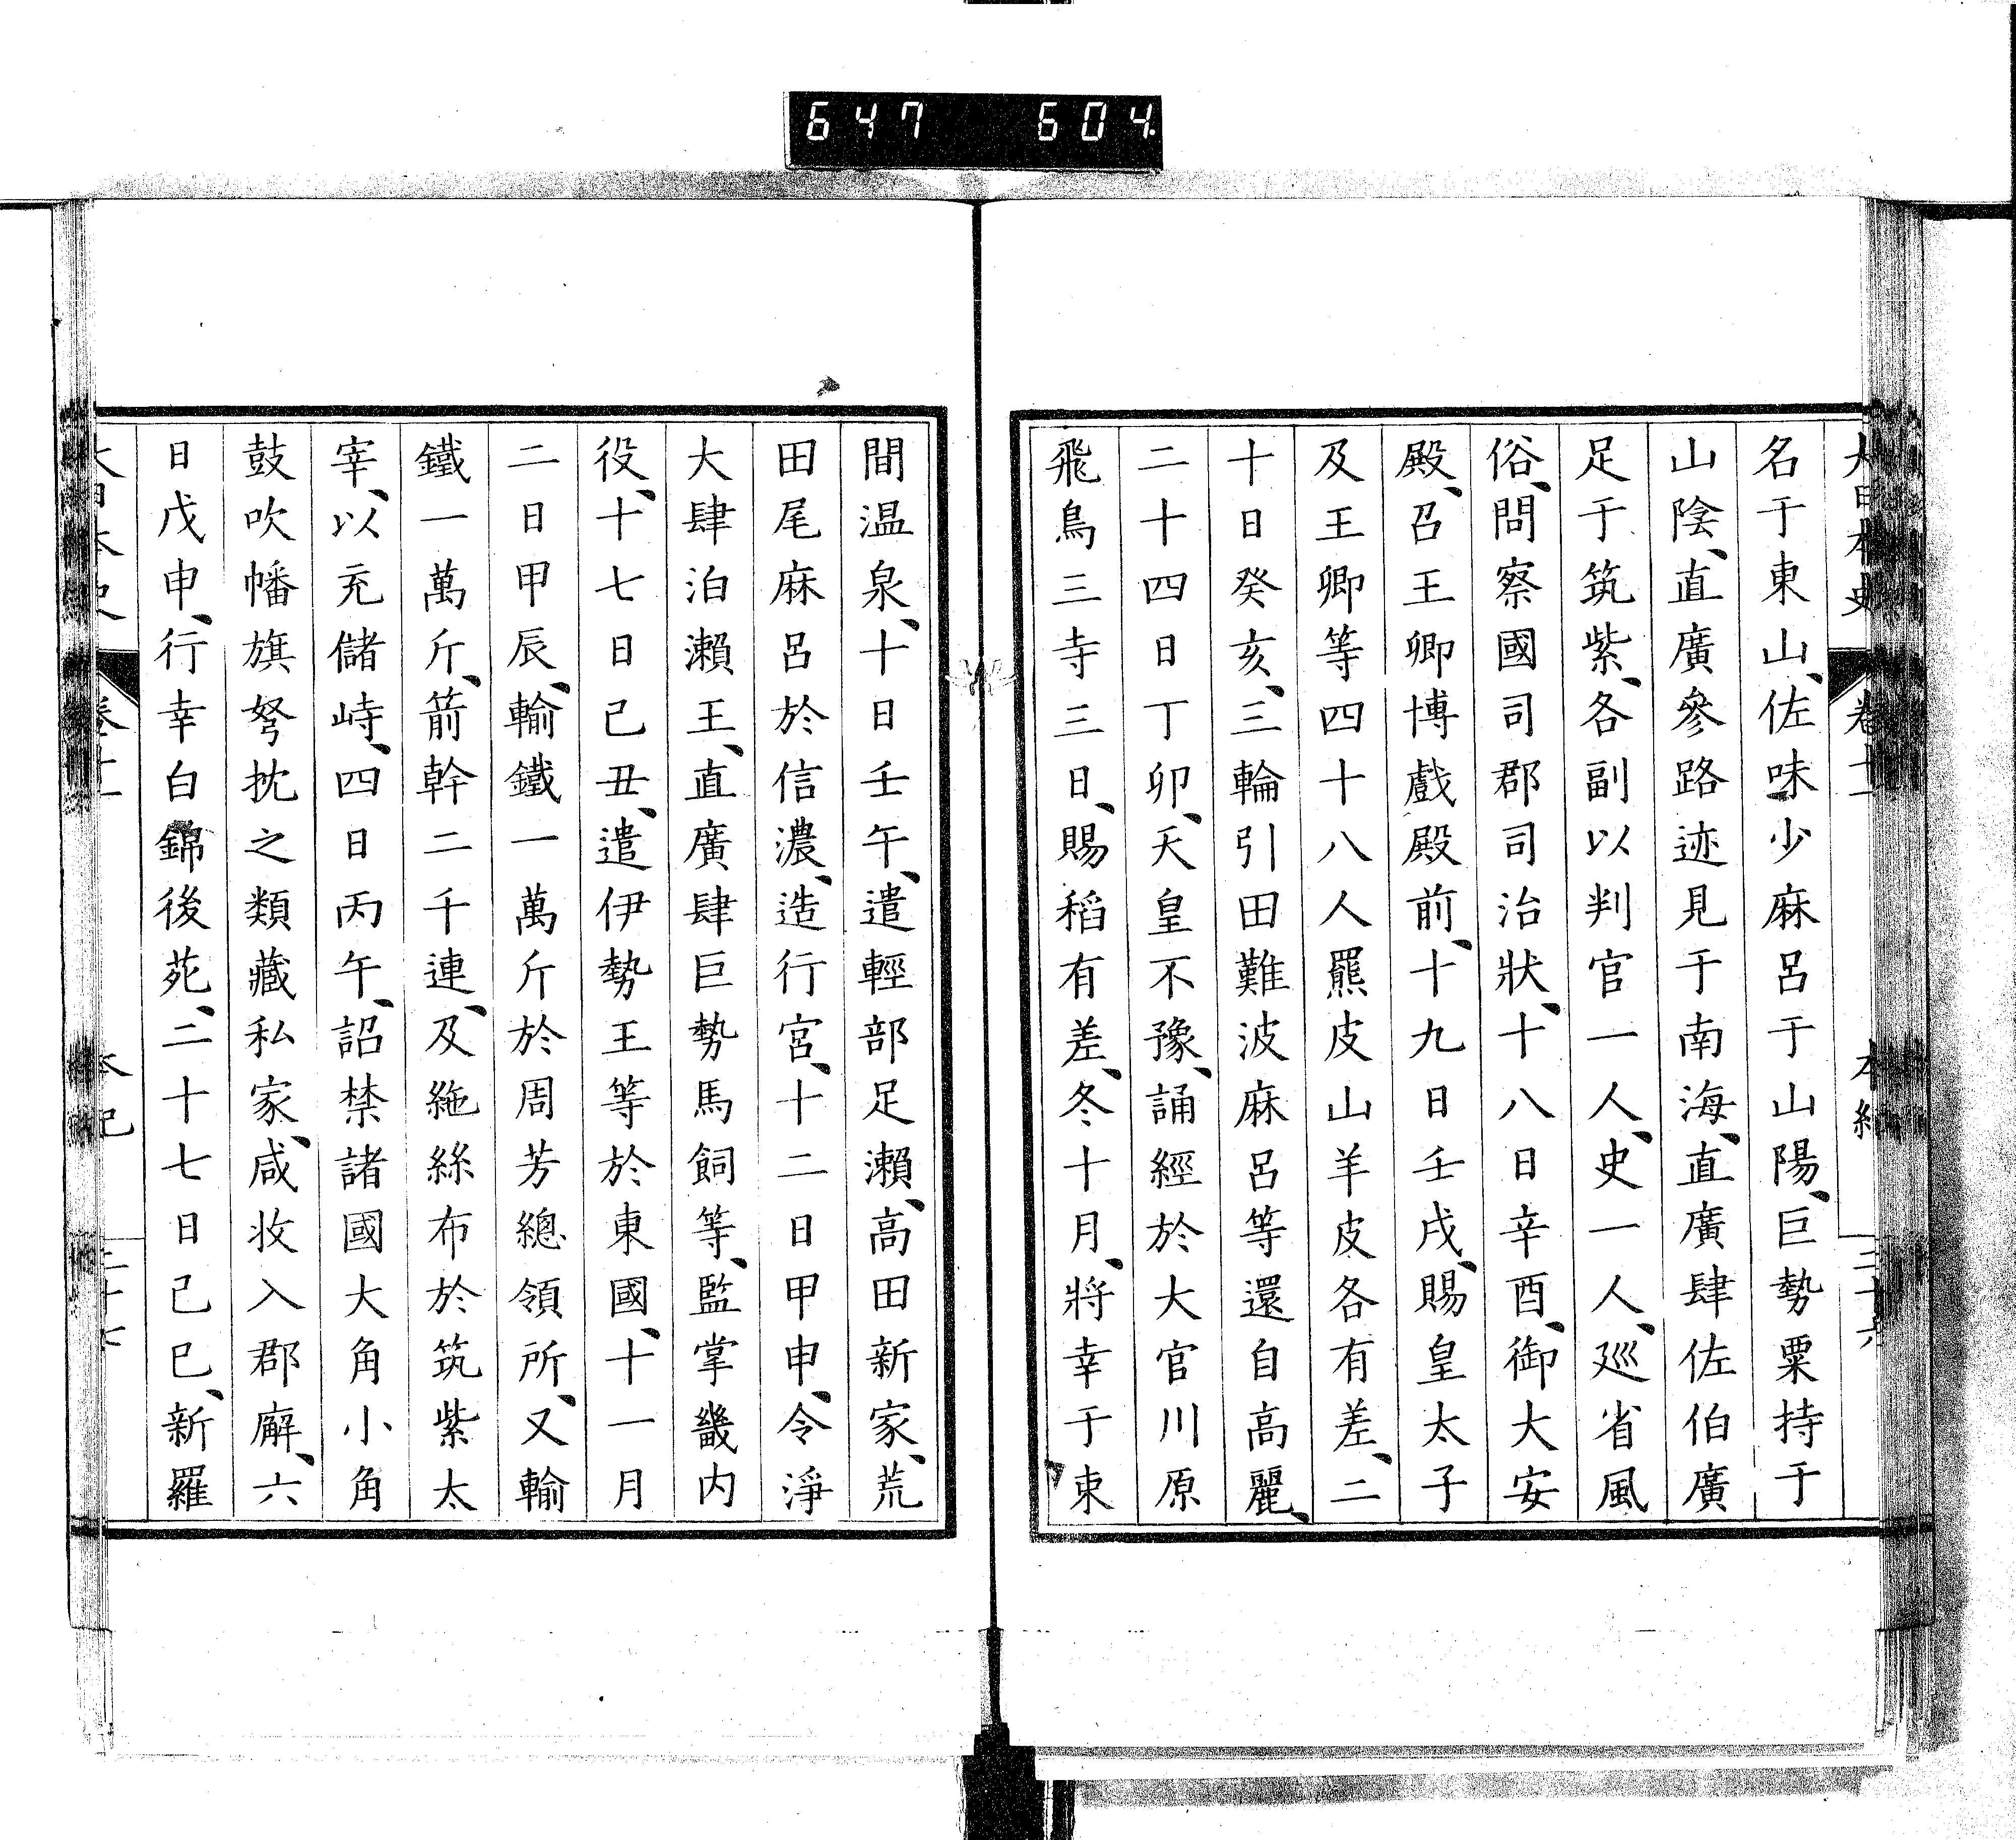 647 604.
大日本史 卷十一 本紀 三十六
名于東山、佐味少麻呂于山陽、巨勢粟持于
山陰、直廣參路迹見于南海、直廣肆佐伯廣
足于筑紫、各副以判官一人、史一人、巡省風
俗、問察國司郡司治狀、十八日辛酉、御大安
殿、召王卿博戲殿前、十九日壬戌、賜皇太子
及王卿等四十八人羆皮山羊皮各有差、二
十日癸亥、三輪引田難波麻呂等還自高麗、
二十四日丁卯、天皇不豫、誦經於大官川原
飛鳥三寺三日、賜稻有差、冬十月、將幸于束
間温泉、十日壬午、遣輕部足瀨、高田新家、荒
田尾麻呂於信濃、造行宮、十二日甲申、令淨
大肆泊瀨王、直廣肆巨勢馬飼等、監掌畿内
役、十七日己丑、遣伊勢王等於東國、十一月
二日甲辰、輸鐵一萬斤於周芳總領所、又輸
鐵一萬斤、箭幹二千連、及絁絲布於筑紫太
宰、以充儲峙、四日丙午、詔禁諸國大角小角
鼓吹幡旗弩抛之類藏私家、咸收入郡廨、六
日戊申、行幸白錦後苑、二十七日己巳、新羅
大日本史 卷十一 本紀 三十七